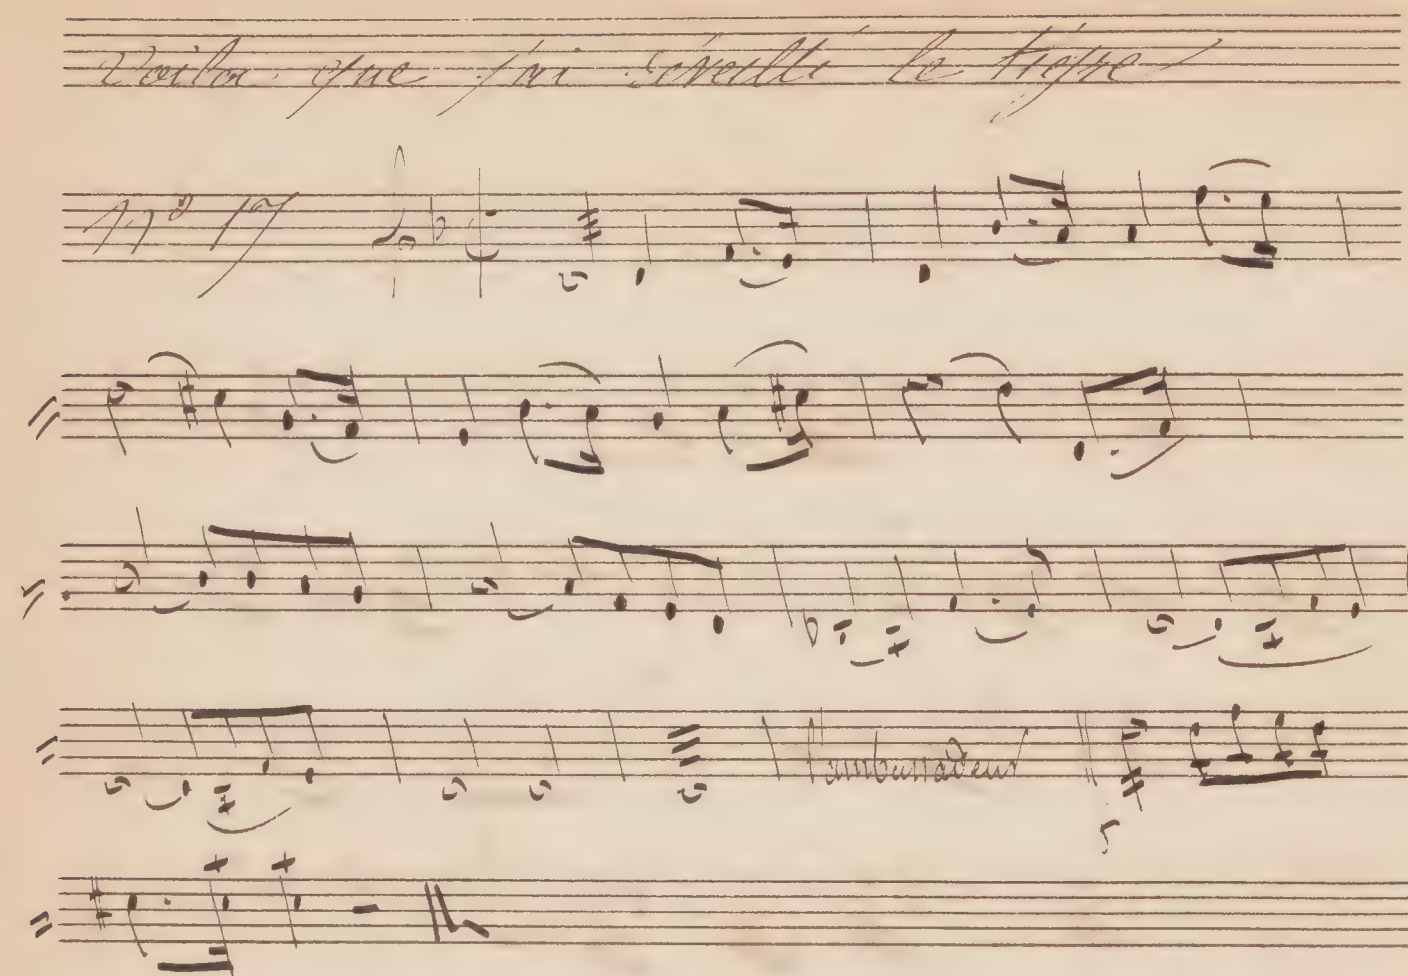 Voila que j'ai éveillé le tigre
Nº 17
l'ambassadeur
5